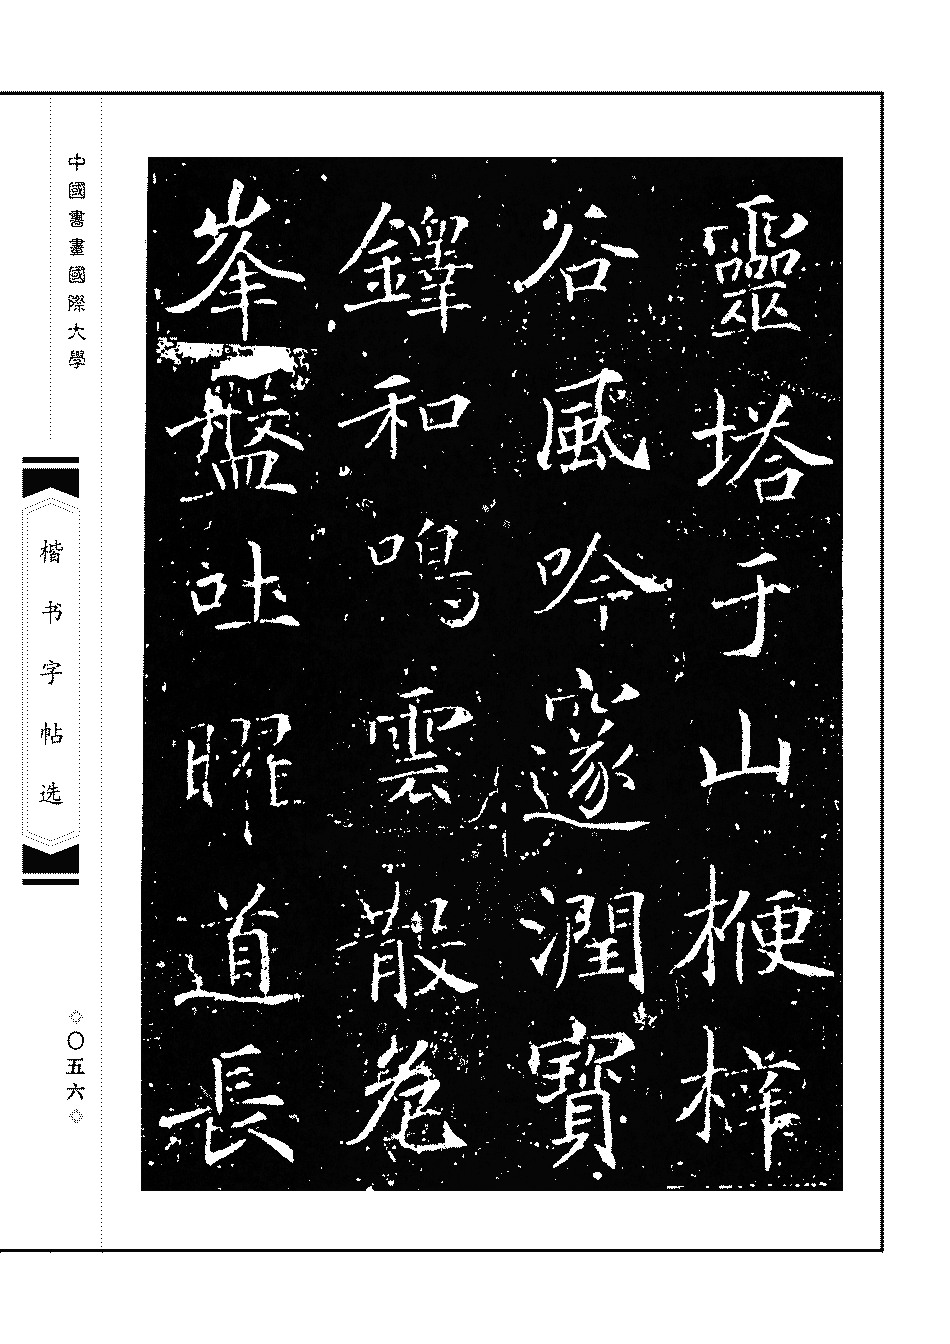 靈塔于山楩梓
谷風吟邃潤寶
鐸和鳴雲散卷
峯盤吐曜道長
中國書畫國際大學
楷书字帖选
◇〇五六◇